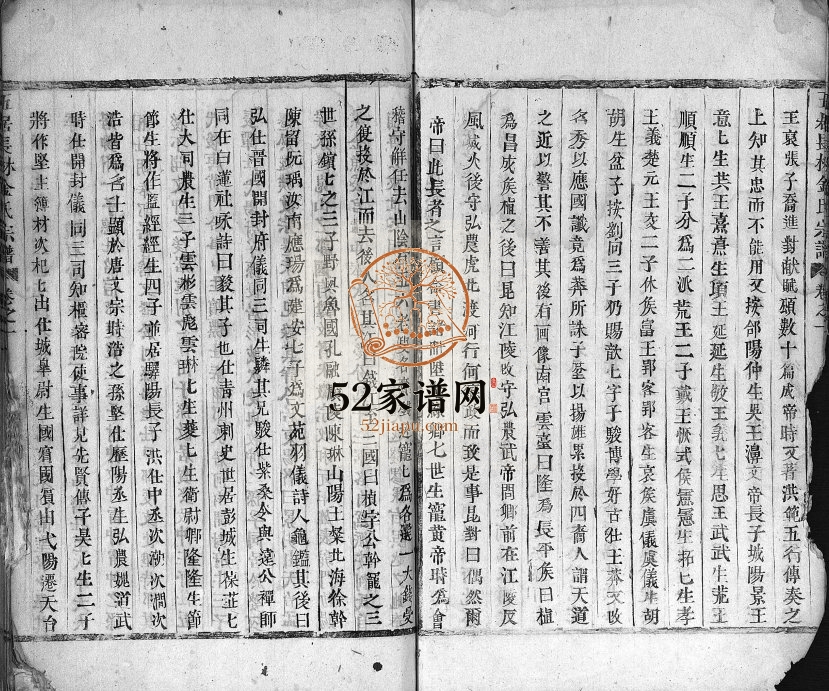 王裒張子喬進對献賦頌數十篇成帝時又著洪範五行傳奏之
上知其忠而不能用又按郃陽仲生吳王濞文帝長子城陽景王
意七生共王喜喜生頃王延延生敬王義七生思王武武生荒王
順順生二子分為二派荒王二子
王義楚元王交二子休侯富王郢客郢客生哀侯
胡生盆子按劉向三子仍賜歆七字子駿博學好古仕王莽又改
名秀以應國讖竟為莽所誅子棻以揚雄累投於四裔人謂天道
之近以警其不善其後有画像南宫雲臺曰隆為長平侯曰植
為昌成侯植之後曰昆知江陵改守弘農武帝問卿前在江陵反
風滅火後守弘農虎北渡河行何政而致是事昆對曰偶然爾
帝曰此長者之言顧命書諸 鄉七世生寵黄帝時為會
稽守鮮任去山陰 寵七為各選一大錢受
之復投於江而去後人名其江曰錢 三國曰楨字公幹寵之三
世孫 七之三子 與魯國孔融 陳琳山陽王粲北海徐幹
陳留阮瑀汝南應瑒為建安七子為文苑羽儀詩人龜鑑其後曰
弘仕晋國開封府儀同三司生驎其兄駿仕柴桑令與遠公禪師
同在白蓮社 詩曰 其子也仕青州刺史世居彭城生 七
仕大司農生三子雲彬雲彪雲琳七生 七生衛尉卿隆隆生節
節生將作監經經生四子並居驛陽長子洪仕中丞次 次澗次
浩皆為舍十顯於唐文宗時浩之孫堅仕歷陽丞生弘農觀道武
時仕開封儀同三司知樞密院使事詳見先賢傳子昊七生二子
將作堅主簿材次杞七出仕城皋尉生國賓國賓由弋陽遷天台
52家谱网
52jiapu.com